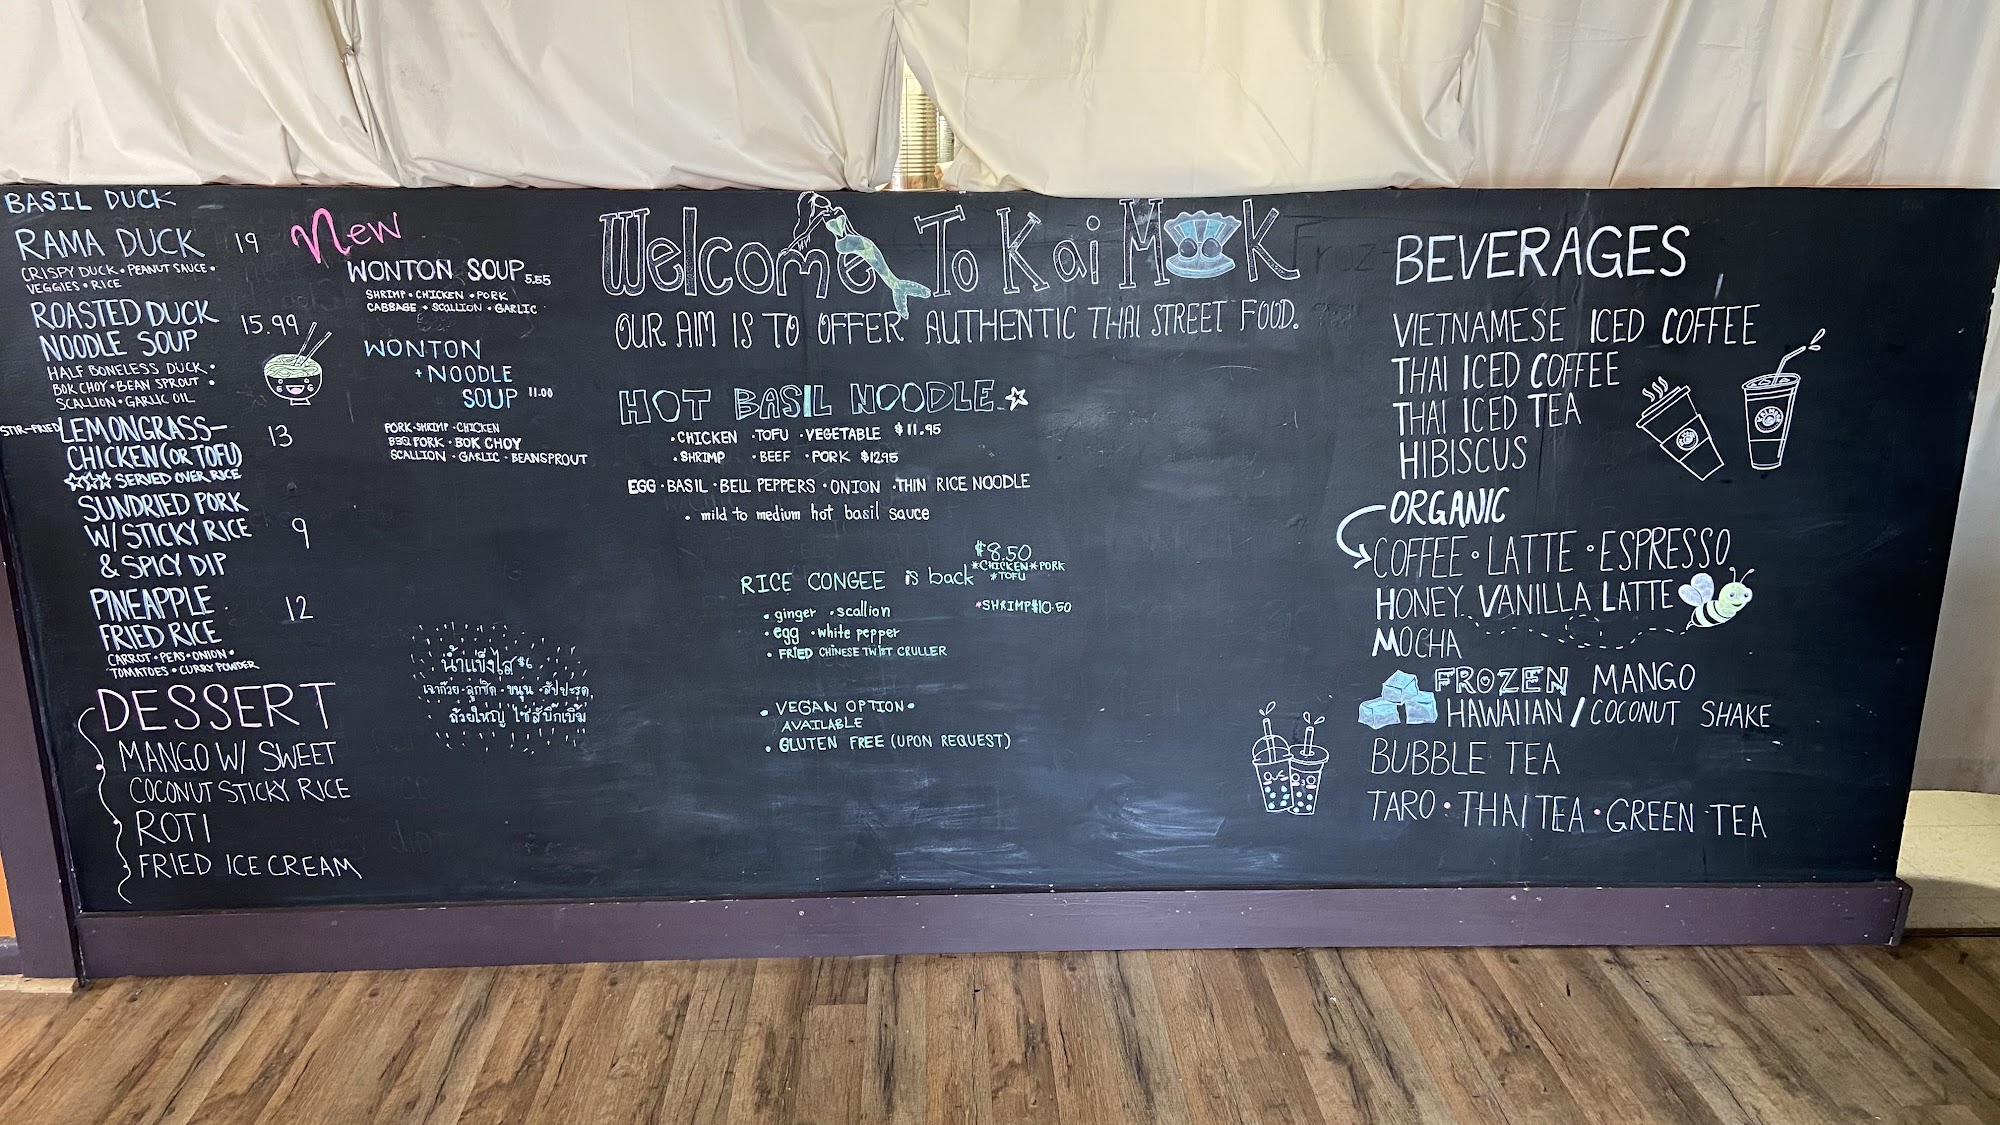 BASIL DUCK
RAMA DUCK 19
CRISPY DUCK • PEANUT SAUCE •
VEGGIES • RICE
ROASTED DUCK
NOODLE SOUP 15.99
HALF BONELESS DUCK •
BOK CHOY • BEAN SPROUT •
SCALLION • GARLIC OIL
STIR-FRIED LEMONGRASS-
CHICKEN (OR TOFU) 13
SERVED OVER RICE
SUNDRIED PORK
W/ STICKY RICE 9
& SPICY DIP
PINEAPPLE
FRIED RICE 12
CARROT • PEAS • ONION •
TOMATOES • CURRY POWDER
DESSERT
MANGO W/ SWEET
COCONUT STICKY RICE
ROTI
FRIED ICE CREAM
New
WONTON SOUP 5.55
SHRIMP • CHICKEN • PORK
CABBAGE • SCALLION • GARLIC
WONTON
+ NOODLE
SOUP 11.00
PORK • SHRIMP • CHICKEN
BBQ PORK • BOK CHOY
SCALLION • GARLIC • BEANSPROUT
น้ำแข็งไส $6
เฉาก๊วย • ลูกชิด • ขนุน • สัปปะรด
ถ้วยใหญ่ ไซส์บิ๊กเบิ้ม
Welcome To Kai Mook
OUR AIM IS TO OFFER AUTHENTIC THAI STREET FOOD.
HOT BASIL NOODLE
• CHICKEN • TOFU • VEGETABLE $11.95
• SHRIMP • BEEF • PORK $12.95
EGG • BASIL • BELL PEPPERS • ONION • THIN RICE NOODLE
• mild to medium hot basil sauce
RICE CONGEE is back
$8.50
*CHICKEN*PORK
*TOFU
*SHRIMP $10.50
• ginger • scallion
• egg • white pepper
• FRIED CHINESE TWIST CRULLER
• VEGAN OPTION •
AVAILABLE
• GLUTEN FREE (UPON REQUEST)
BEVERAGES
VIETNAMESE ICED COFFEE
THAI ICED COFFEE
THAI ICED TEA
HIBISCUS
ORGANIC
COFFEE • LATTE • ESPRESSO
HONEY VANILLA LATTE
MOCHA
FROZEN MANGO
HAWAIIAN / COCONUT SHAKE
BUBBLE TEA
TARO • THAI TEA • GREEN TEA